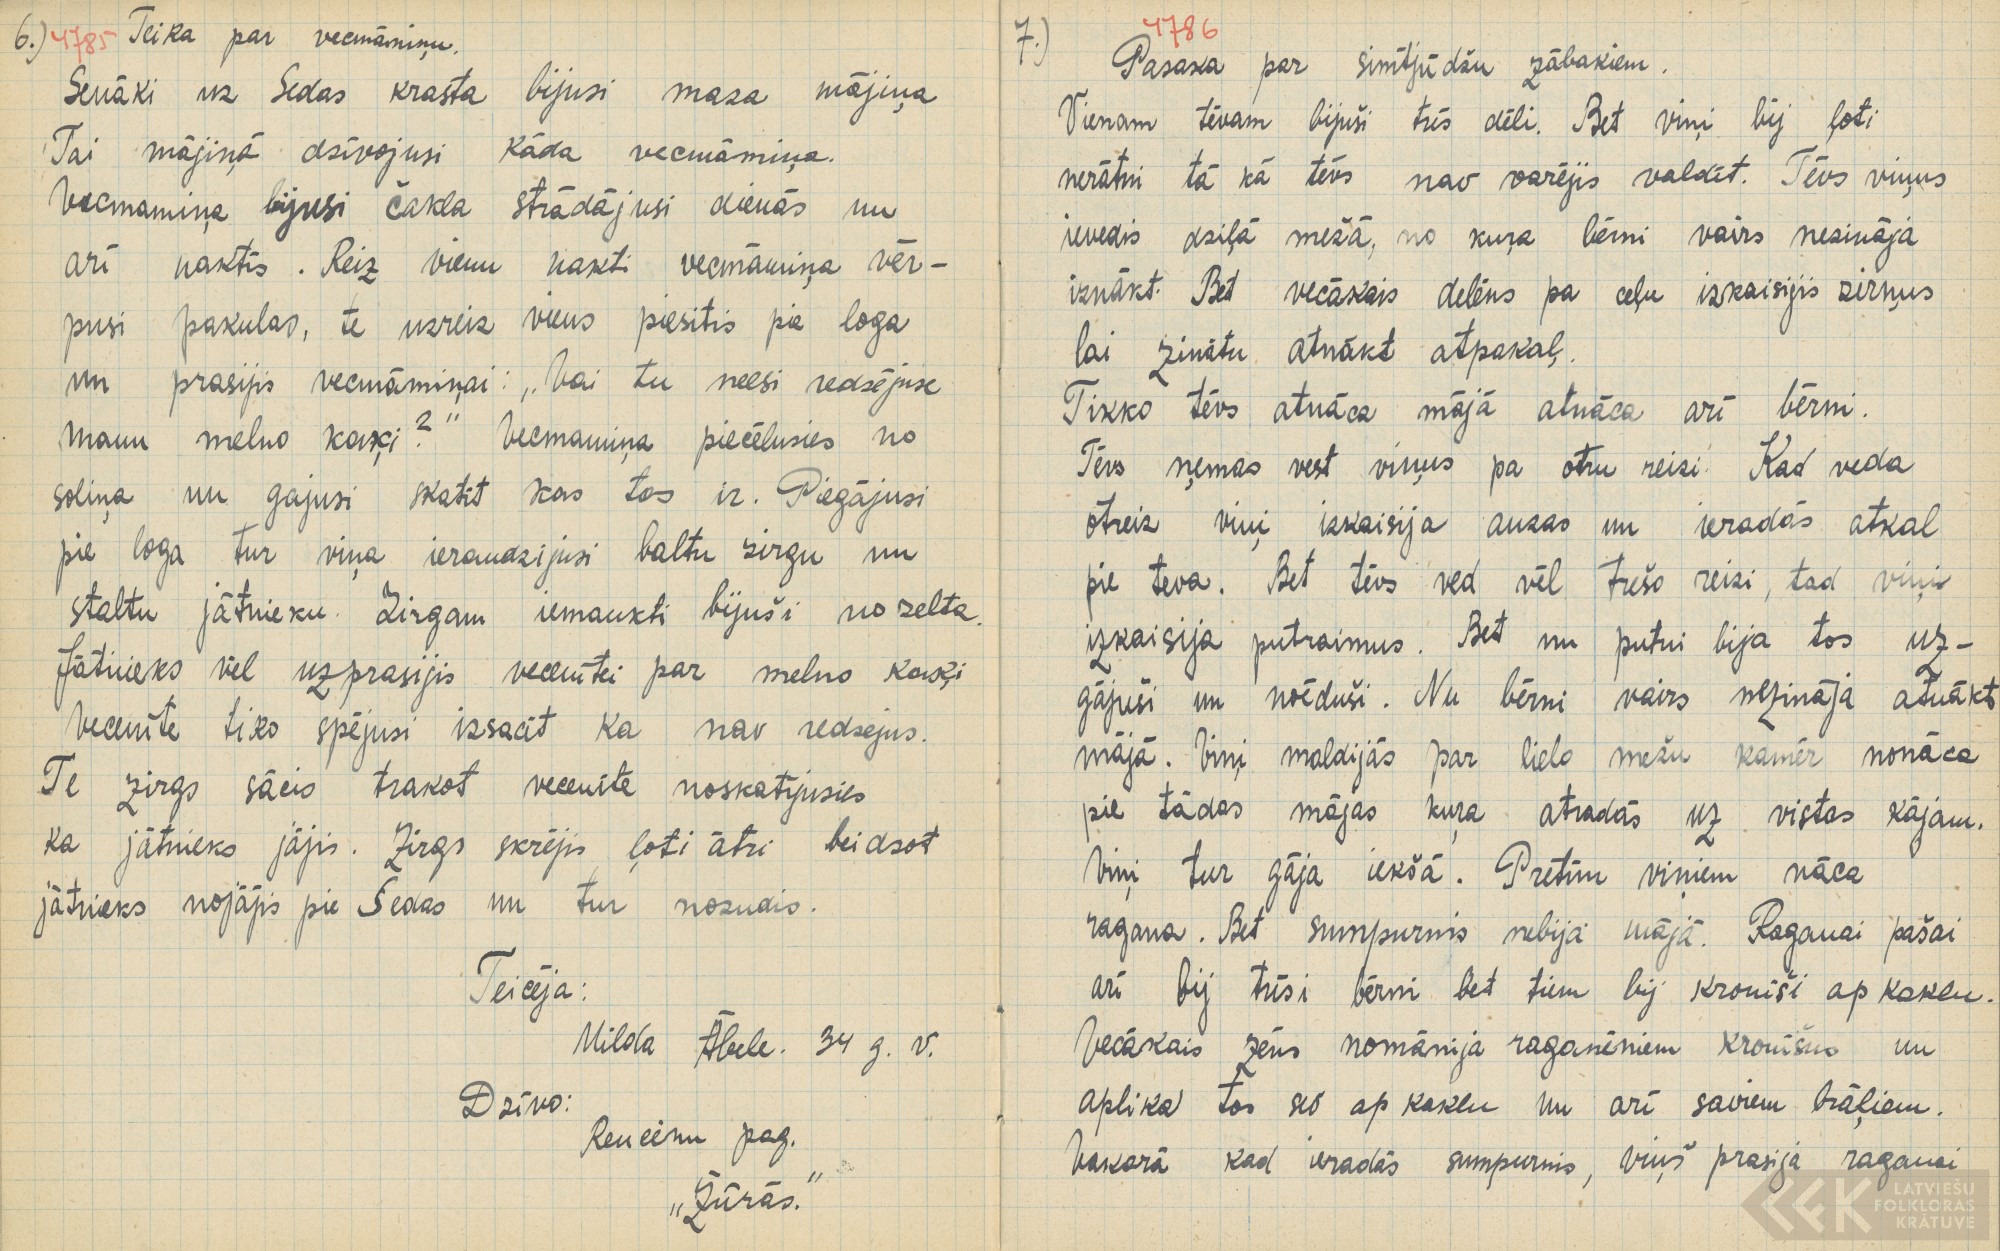 6.) 4785 Teika par vecmāmiņu.
Senāki uz Sedas krasta bijusi maza mājiņa
Tai mājiņā dzīvojusi kāda vecmāmiņa.
Vecmamiņa bijusi čakla strādājusi dienās un
arī naktīs. Reiz vienu nakti vecmāmiņa vēr-
pusi pakulas, te uzreiz viens piesitis pie loga
un prasijis vecmāmiņai: „Vai tu neesi redzējuse
manu melno kaķi?" Vecmamiņa piecēlusies no
soliņa un gājusi skatīt kas tas ir. Piegājusi
pie loga tur viņa ieraudzijusi baltu zirgu un
staltu jātnieku. Zirgam iemaukti bijuši no zelta.
Jātnieks vēl uzprasijis vecenītei par melno kaķi
Vecenīte tiko spējusi izsacīt ka nav redzejus.
Te zirgs sācis trakot vecenīte noskatijusies
ka jātnieks jājis. Zirgs skrējis ļoti ātri beidzot
jātnieks nojājis pie Sedas un tur nozudis.
Teicēja:
Milda Ābele. 34 g. v.
Dzīvo:
Rencēnu pag.
„Zūrās."
7.) 4786
Pasaka par simtjūdžu zābakiem.
Vienam tēvam bijuši trīs dēli. Bet viņi bij ļoti
nerātni tā kā tēvs nav varējis valdīt. Tēvs viņus
ievedis dziļā mežā, no kuŗa bērni vairs nezināja
iznākt. Bet vecākais delēns pa ceļu izkaisijis zirņus
lai zinātu atnākt atpakaļ.
Tikko tēvs atnāca mājā atnāca arī bērni.
Tēvs ņemas vest viņus pa otru reizi. Kad veda
otreiz viņi izkaisija auzas un ieradās atkal
pie teva. Bet tēvs ved vēl trešo reizi, tad viņi
izkaisija putraimus. Bet nu putni bija tos uz-
gājuši un noēduši. Nu bērni vairs nezināja atnākt
mājā. Viņi maldijās par lielo mežu kamēr nonāca
pie tādas mājas kuŗa atradās uz vistas kājam.
Viņi tur gāja iekšā. Pretim viņiem nāca
ragana. Bet sumpurnis nebija mājā. Raganai pašai
arī bij trīsi bērni bet tiem bij kronīši ap kaklu.
Vecākais zēns nomānija raganēniem kronīšus un
aplika tos sev ap kaklu un arī saviem brāļiem.
Vakarā kad ieradās sumpurnis, viņš prasija raganai
LATVIEŠU
FOLKLORAS
KRĀTUVE